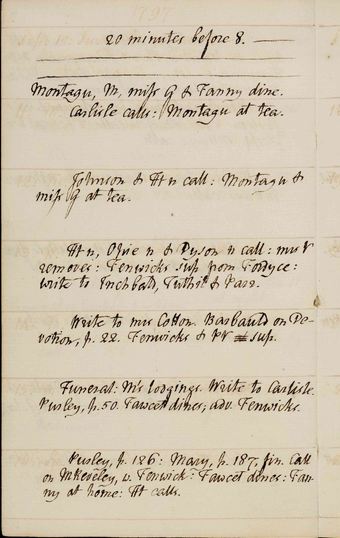 20 minutes before 8. —
Montagu, M, miss G & Fanny dine.
Carlisle calls: Montagu at tea.
Johnson & Ht n call: Montagu &
miss G at tea.
Ht n, Opie n & Dyson n call: mrs
removes: Fenwicks sup from Fordyce:
write to Inchbald, Tuthil & Parr.
Write to mrs Cotton. Barbauld on De-
votion, p. 22. Fenwicks & sup.
Funeral: M's lodgings. Write to Carlisle.
Purley, p. 50. Fawcet dines; adv. Fenwicks.
Purley, p. 186: Mary, p. 187, fin. Call
on Mrs, v. Fenwick: Fawcet dines: Fan-
ny at home: Ht calls.